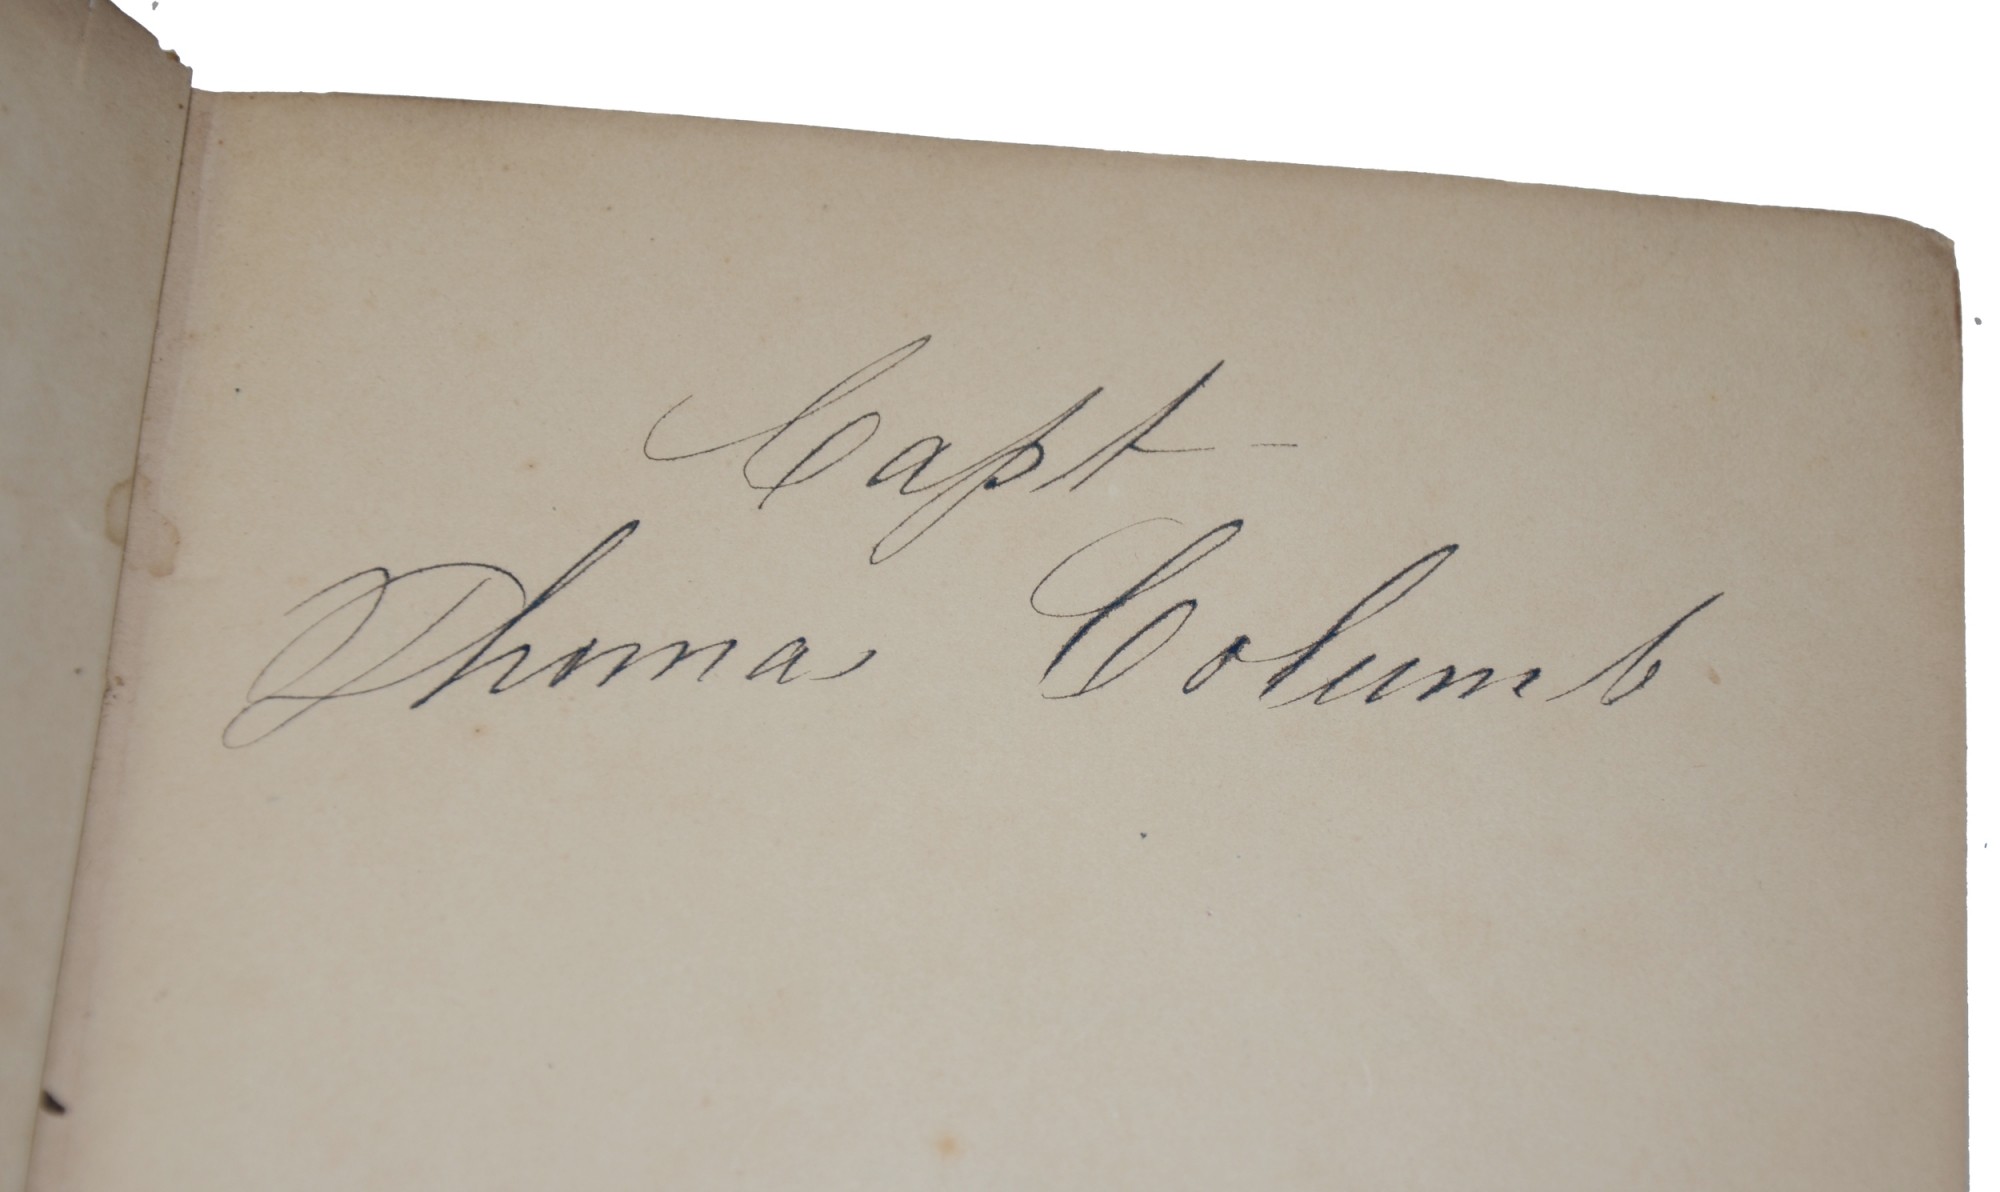 Capt -
Thomas Columb